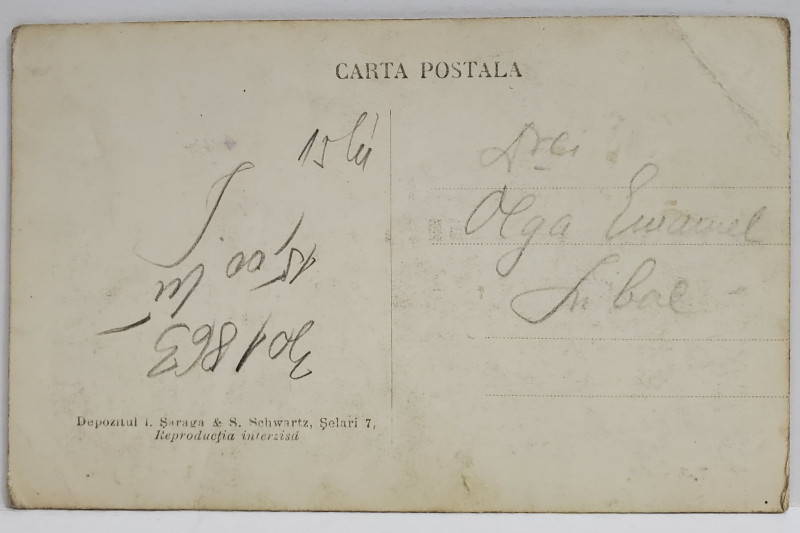 CARTA POSTALA
15 lei
15,00 lei
301863
Olga Emanuel
În bal -
Depozitul I. Șaraga & S. Schwartz, Șelari 7,
Reproducția interzisă